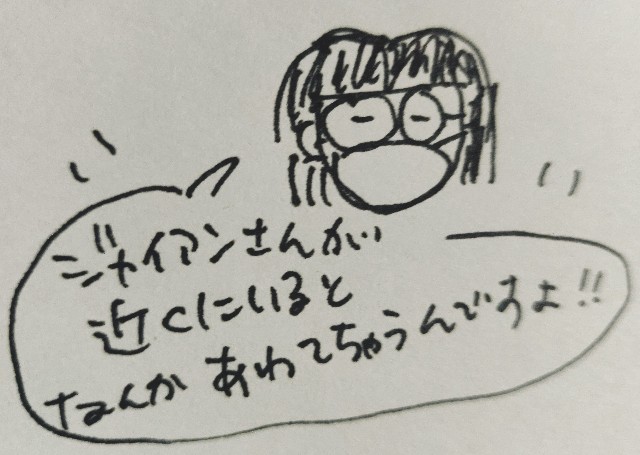 ジャイアンさんが
近くにいると
なんかあわてちゃうんですよ!!